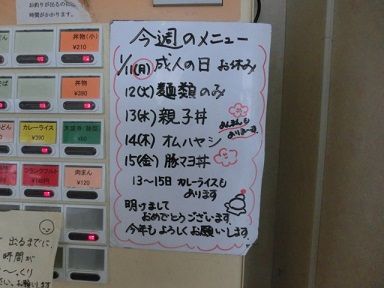 お釣りが出るのに
時間がかかります。
丼物(小)
¥210
丼物
¥390
カレーライス
肉まん
¥120
出るまでに、
時間が
今週のメニュー
1/11(月) 成人の日 お休み
12(火) 麺類のみ
13(水) 親子丼
14(木) オムハヤシ
15(金) 豚マヨ丼
13〜15日 カレーライスも
あります
明けまして
おめでとうございます
今年もよろしくお願いします。